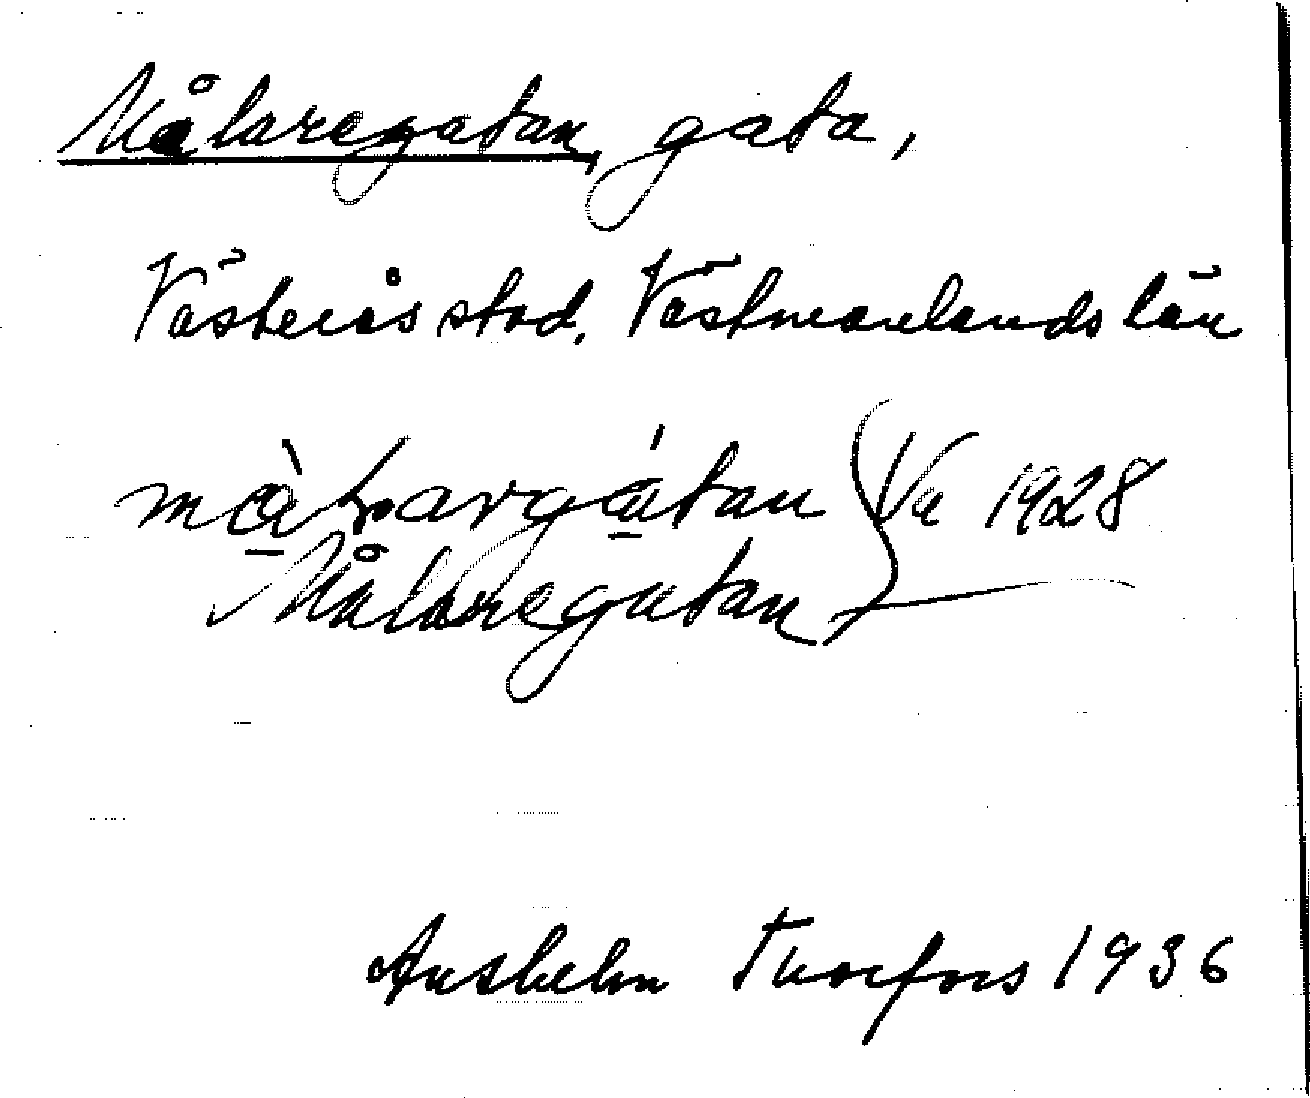 Målaregatan, gata,
Västerås stad. Västmanlands län
målargatan } Va 1928
Målaregatan
Anshelm Thorfors 1936